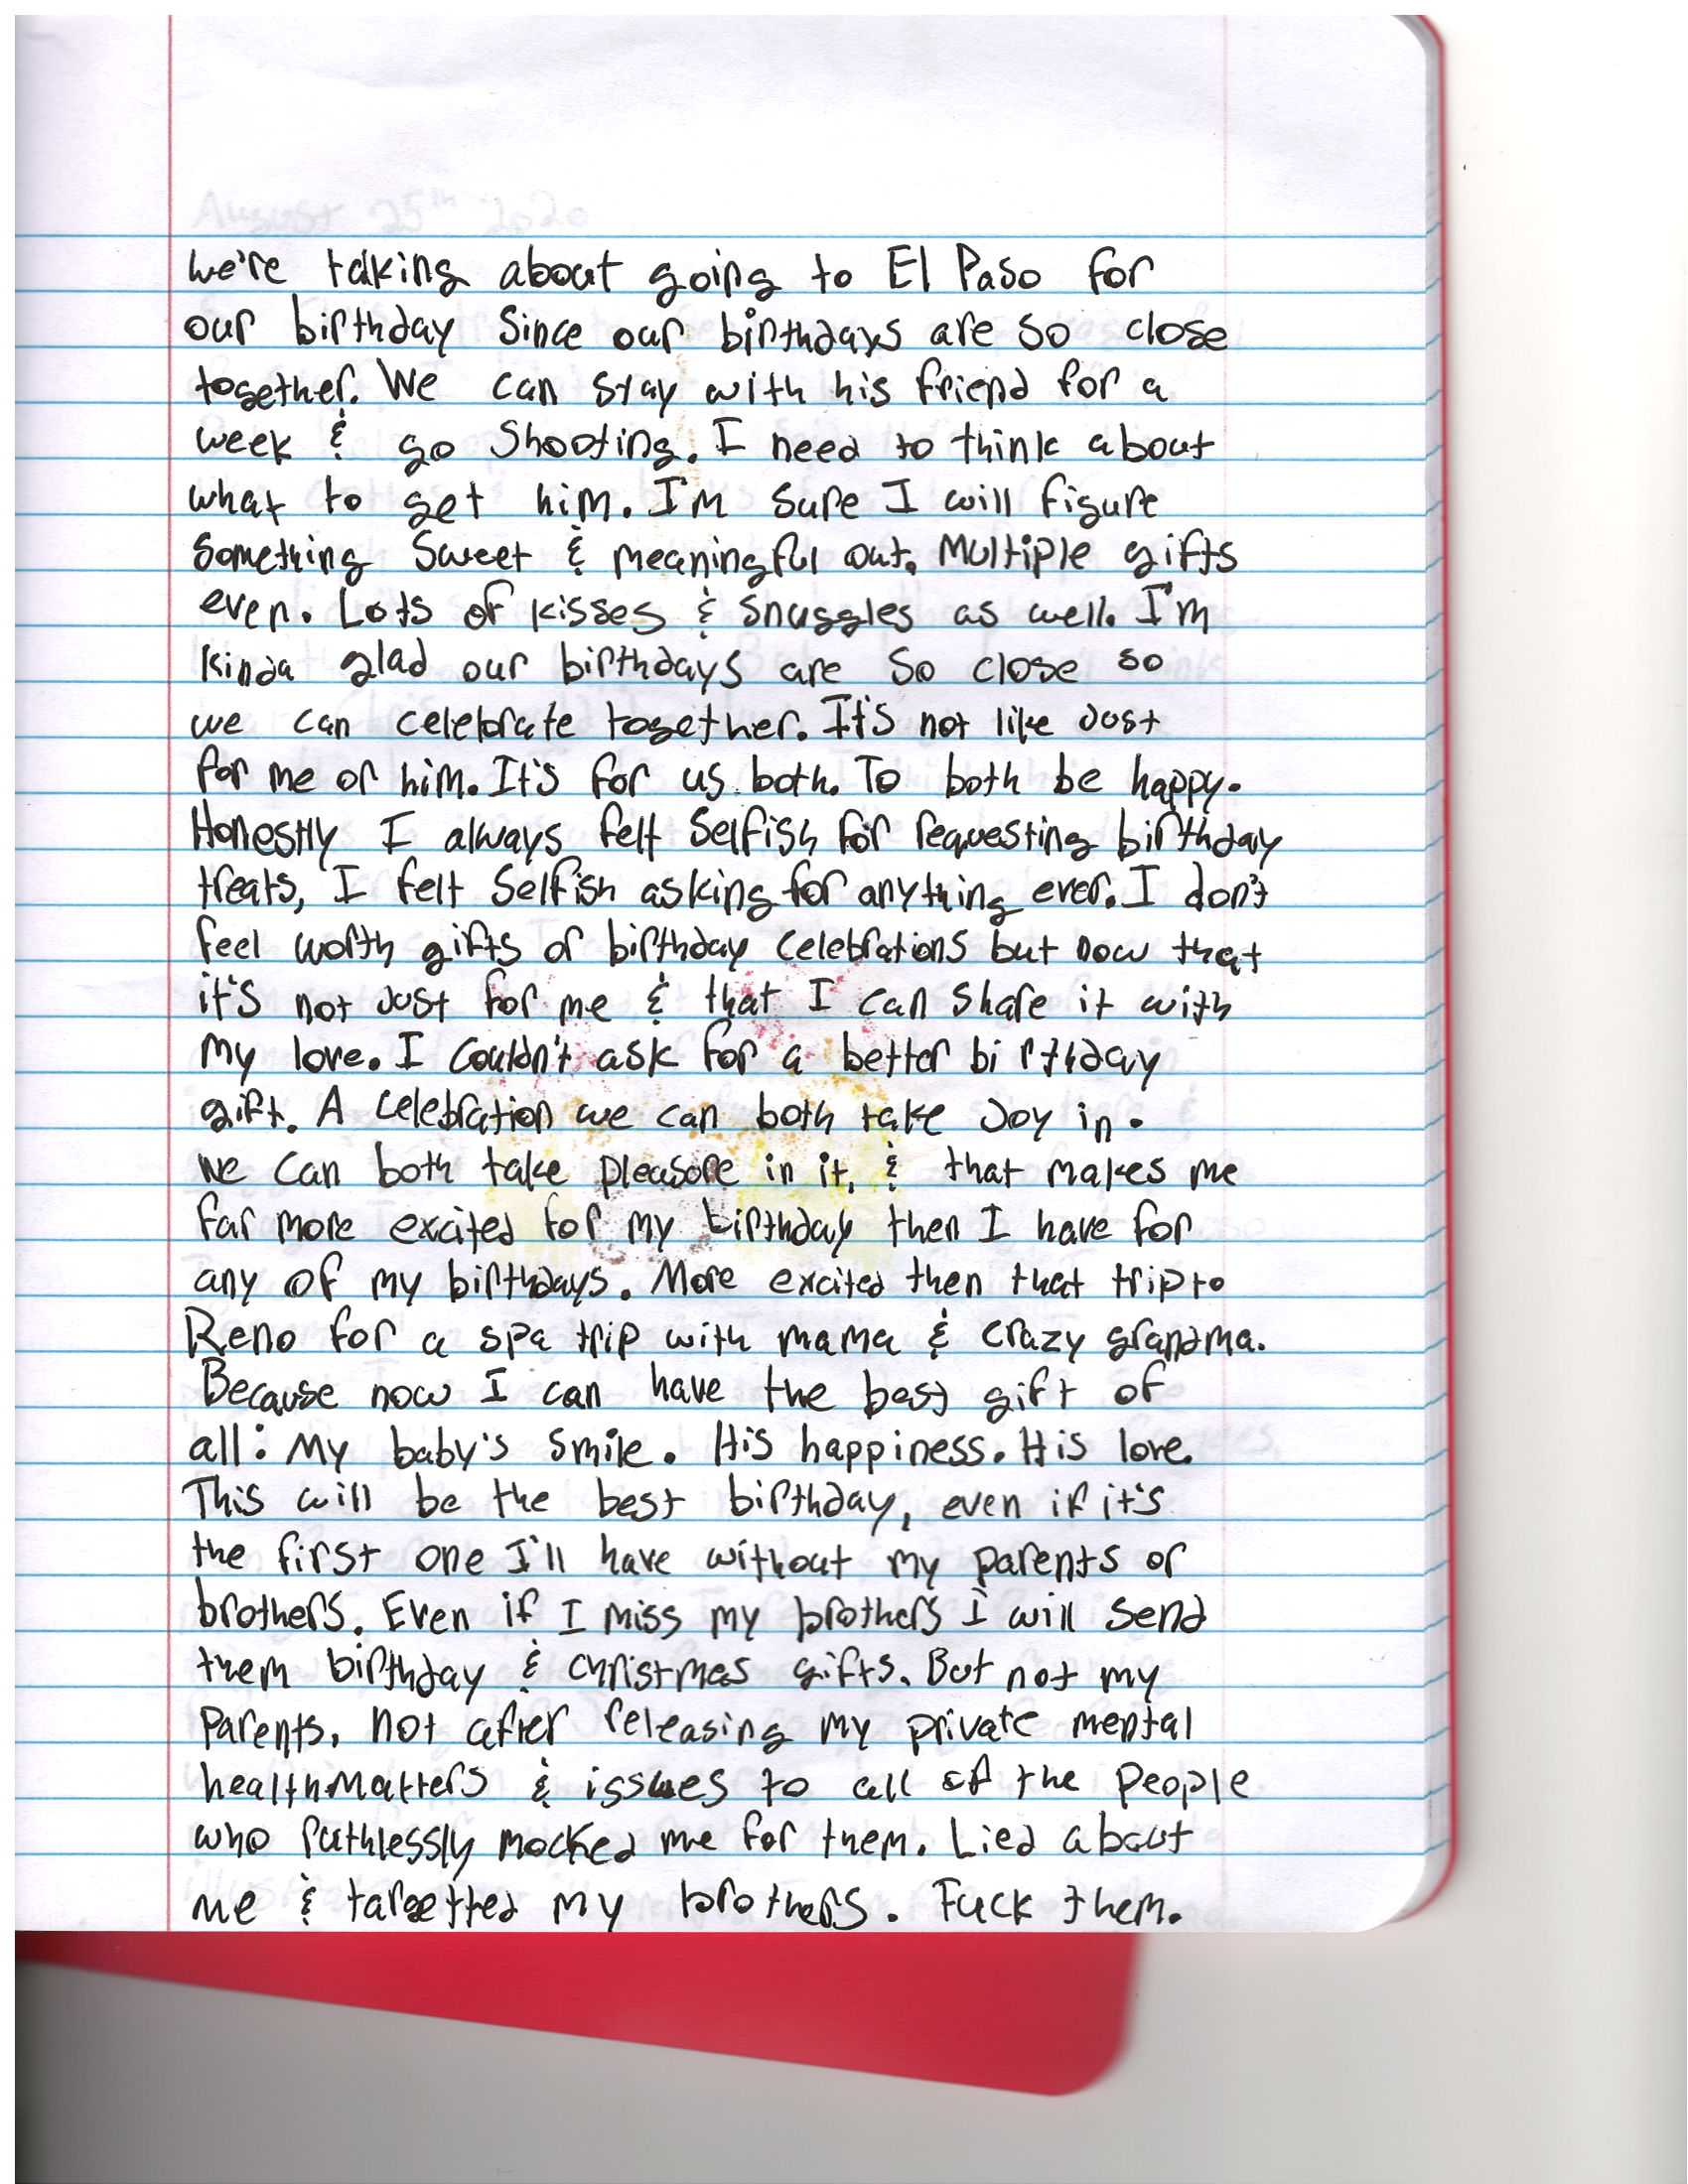 August 25th 2020
We're talking about going to El Paso for
our birthday since our birthdays are so close
together. We can stay with his friend for a
week & go shooting. I need to think about
what to get him. I'm sure I will figure
something sweet & meaningful out. Multiple gifts
even. Lots of kisses & snuggles as well. I'm
kinda glad our birthdays are so close so
we can celebrate together. It's not like just
for me or him. It's for us both. To both be happy.
Honestly I always felt selfish for requesting birthday
treats, I felt selfish asking for anything ever. I don't
feel worth gifts or birthday celebrations but now that
it's not just for me & that I can share it with
my love. I couldn't ask for a better birthday
gift. A celebration we can both take joy in.
We can both take pleasure in it. & that makes me
far more excited for my birthday then I have for
any of my birthdays. More excited then that trip to
Reno for a spa trip with mama & crazy grandma.
Because now I can have the best gift of
all: My baby's smile. His happiness. His love.
This will be the best birthday, even if it's
the first one I'll have without my parents or
brothers. Even if I miss my brothers I will send
them birthday & christmas gifts. But not my
parents. not after releasing my private mental
health matters & issues to all of the people
who ruthlessly mocked me for them. Lied about
me & targetted my brothers. Fuck them.